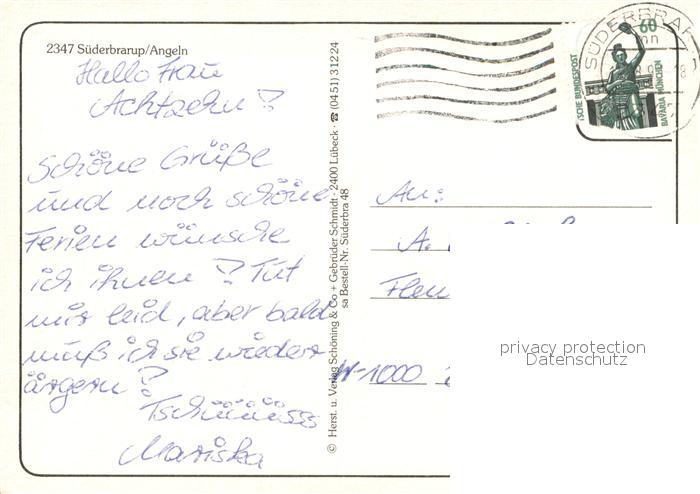 2347 Süderbrarup/Angeln
Hallo Frau
Achtzehn!
Schöne Grüße
und noch schöne
Ferien wünsche
ich ihnen! Tut
mir leid, aber bald
muß ich sie wieder
ärgern!
Tschüüüss
Mariska
© Herst. u. Verlag Schöning & Co + Gebrüder Schmidt · 2400 Lübeck · ☎ (0451) 3 12 24
sa Bestell-Nr. Süderbra 48
60
TSCHE BUNDESPOST
BAVARIA MÜNCHEN
SÜDERBRAR
An:
A.
Flen
W-1000
privacy protection
Datenschutz